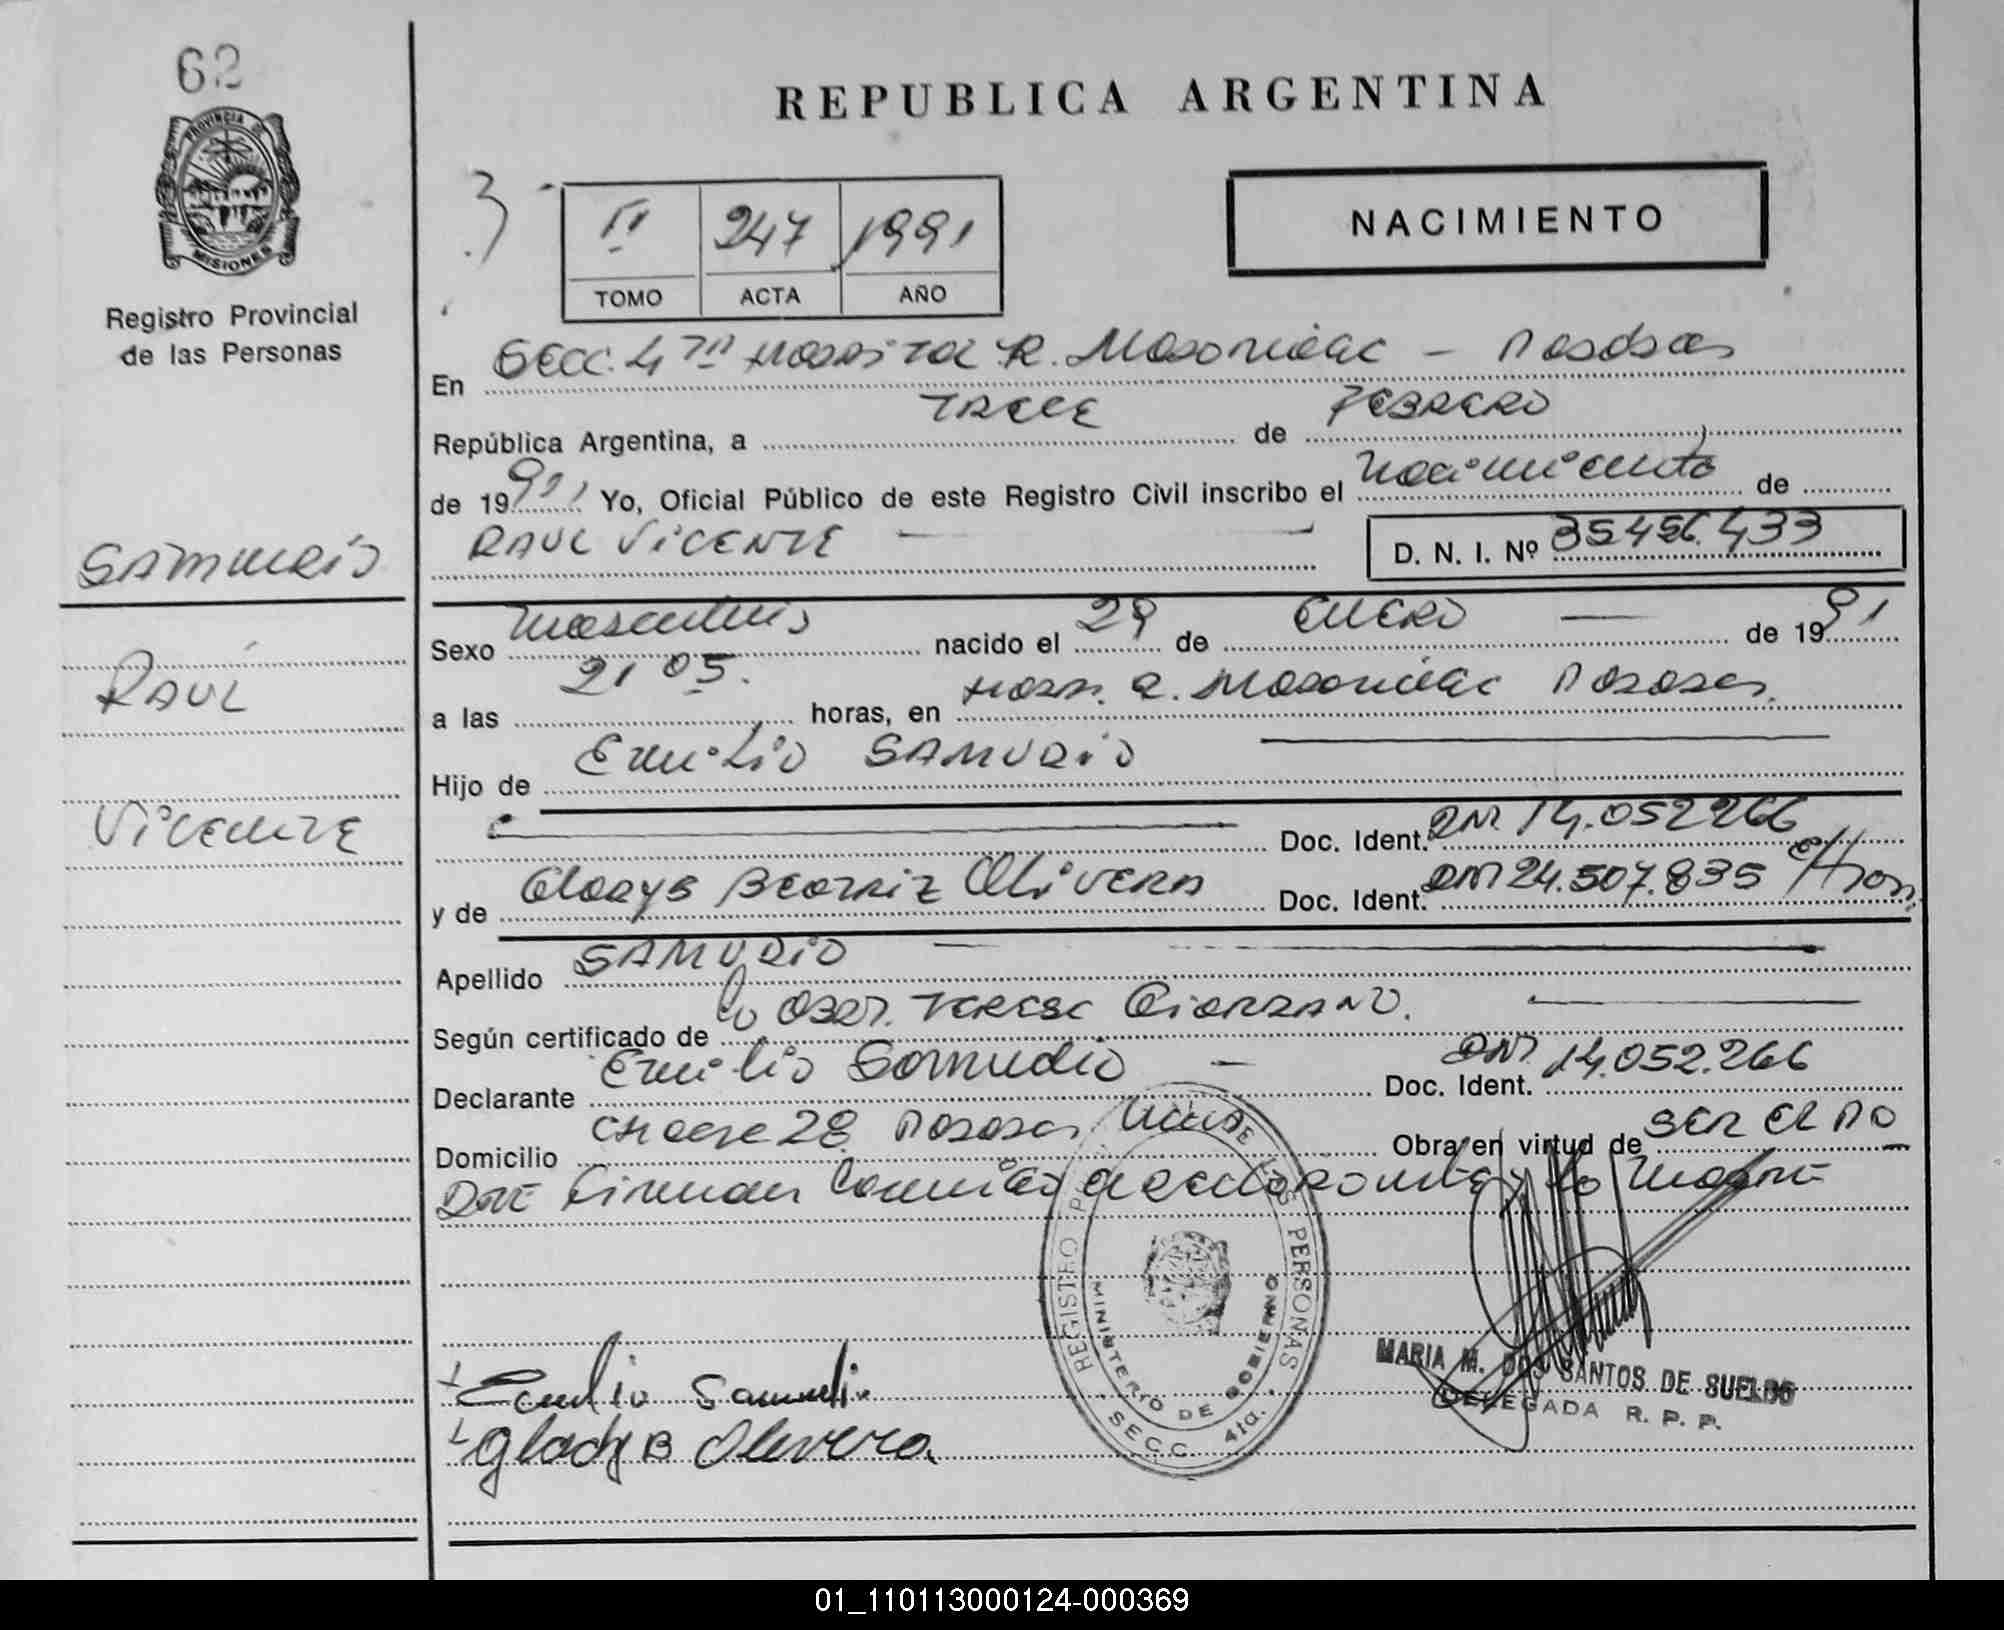 62
PROVINCIA DE
MISIONES
Registro Provincial
de las Personas
REPUBLICA ARGENTINA
NACIMIENTO
3
II 247 1991
TOMO ACTA AÑO
En Secc. 4ta Hospital R. Madariaga - Posadas
República Argentina, a TRECE de FEBRERO
de 1991 Yo, Oficial Público de este Registro Civil inscribo el nacimiento de
RAUL VICENTE
D. N. I. Nº 35456.433
SAMUDIO
RAUL
VICENTE
Sexo masculino nacido el 29 de ENERO de 1991
a las 21 05. horas, en Hosp. R. Madariaga Posadas.
Hijo de Emilio SAMUDIO
Doc. Ident. DNI 14.052266
y de Gladys Beatriz Olivera Doc. Ident. DNI 24.507.835
Apellido SAMUDIO
Según certificado de la Obst. Teresa
Declarante Emilio Samudio Doc. Ident. DNI 14.052.266
Domicilio Chacra 28 Posadas Mnes Obra en virtud de SER EL PA
DRE Firman la madre
REGISTRO P DE LAS PERSONAS
MINISTERIO DE GOBIERNO
SECC. 4ta.
MARIA M. DOS SANTOS DE SUELDO
DELEGADA R. P. P.
Emilio Samudio
Gladys B Olivera
01_110113000124-000369